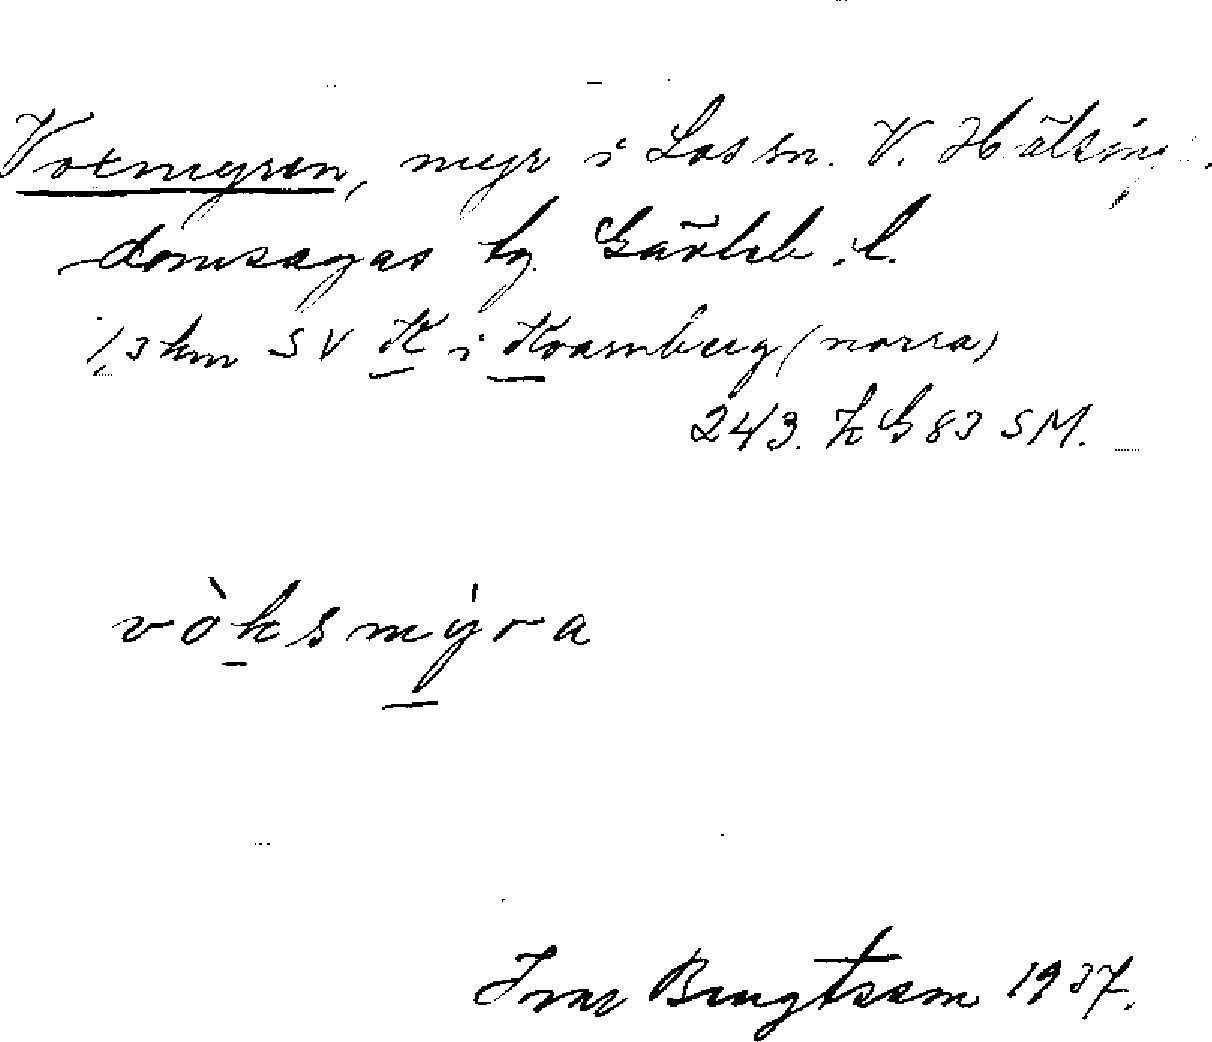 Voxmyren, myr i Los sn. V. Hälsing.
domsagas tg. Gävleb. l.
1,3 km SV K i Kvarnberg (norra)
243. KG 83 SM.
vòksmýra
Ivar Bengtsson 1937.